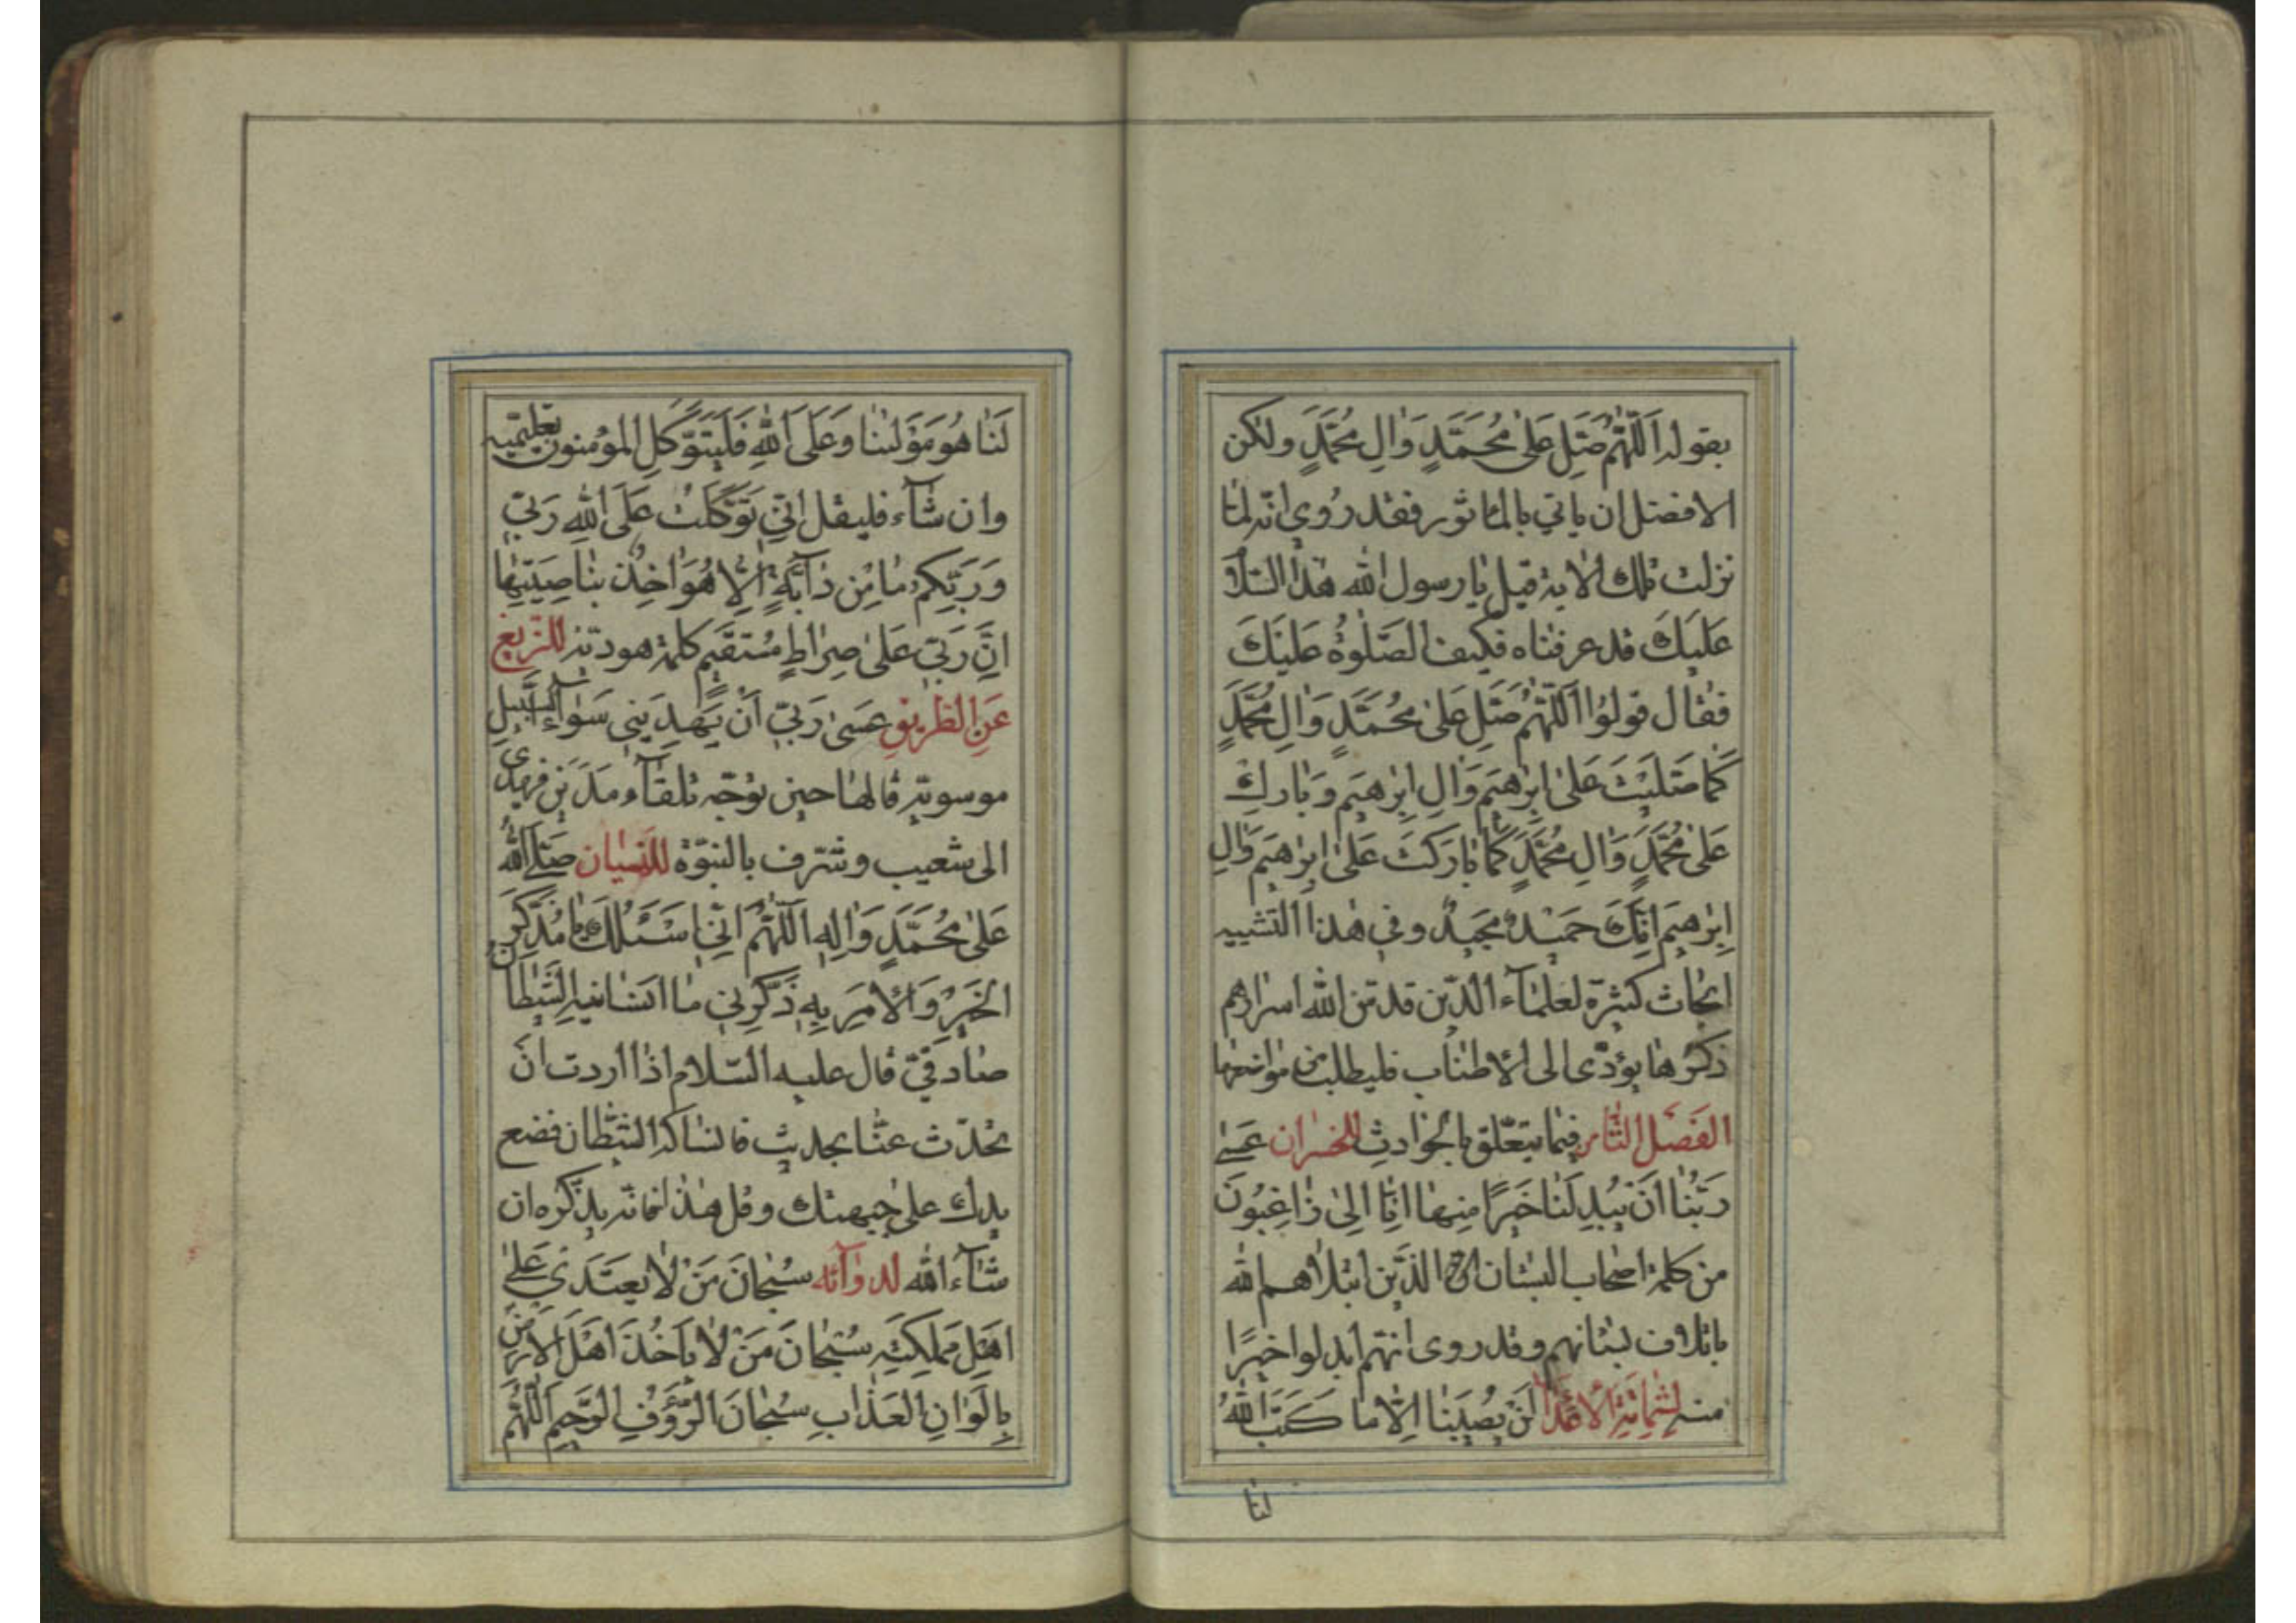 بقوله اَللّٰهُمَّ صَلِّ عَلىٰ مُحَمَّدٍ وَاٰلِ مُحَمَّدٍ ولكن
الافضل ان ياتي بالماثور فقد رُوي انّه لمّا
نزلت تلك الاية قيل يا رسول الله هذا السّلام
عَلَيكَ قد عرفناه فكيف الصَّلوٰةُ عَلَيكَ
فقال قولوُا اَللّٰهُمَّ صَلِّ عَلىٰ مُحَمَّدٍ وَاٰلِ مُحَمَّدٍ
كَمَا صَلَّيْتَ عَلىٰ اِبْرٰهيَم وَاٰلِ اِبْرٰهيَم وَبَارِك
عَلىٰ مُحَمَّدٍ وَاٰلِ مُحَمَّدٍ كَمَا بَارَكتَ عَلىٰ اِبْرٰهيَم وَاٰلِ
اِبْرٰهيَم اِنَّكَ حَميْدٌ مَجيدٌ وفي هٰذا التشبيه
ابحاث كثيرة لعلماۤء الذّين قدّس الله اسرارهم
ذكرها يؤدّى الى الاطناب فليطلب من مواضعها
الفَصْل الثّامن فيما يتعّلق بالحوادثِ للخسران عَسىٰ
رَبُّنٰا اَنْ يُبْدِلَنٰا خَيرًا مِنهٰا اِنّٰا اِلىٰ رٰاغِبُونَ
من كلمة اصحاب البستان الذّين ابتلاهم الله
باتلاف بستانهم وقد روى انهّم ابدلوا خيرًا
منه لِشَمٰاتَةِ الاَعْدآ لَنْ يُصيبَنٰا اِلّا ما كَتَبَ اللهُ
لنا
لَنٰا هُوَ مَوْلٰينٰا وَعَلَى اللهِ فَليَتَوَكَّلِ المؤمنون تعليميّه
وان شاۤء فليقل اِنّي تَوَكَّلتُ عَلَى اللهِ رَبّي
وَرَبِّكم مٰا مِن دٰاۤبَّةٍ اِلّا هُوَ اٰخِذٌ بِنٰاصِيَتِهٰا
اِنَّ رَبّي عَلىٰ صِرٰاطٍ مُستَقيم كلمة هوديّه للزّيغ
عَنِ الطّريقِ عَسىٰ رَبّي اَنْ يَهدِيَني سَوٰاۤءَ السَّبيلِ
موسويّه قالها حين توّجه تلقاۤء مَدْيَن فهدى
الى شعيب وشرّف بالنبّوة للنّسيان صَلَّى اللهُ
عَلىٰ مُحَمَّدٍ وَاٰلِهِ اَللّٰهُمَّ اِنّي اَسْئَلُكَ يٰا مُذَكِّرَ
الخَيرِ وَالاٰمِرَ بِهِ ذَكِّرني مٰا اَنسٰانيهِ الشَّيطٰان
صادقيّ قال عليه السّلام اذا اردت انْ
تحدّث عنّا بحديث فانساكه الشّيطان فضع
يدك على جبهتك وقل هذا فانّه يذكره ان
شاۤء الله لدوٰابّه سُبحٰانَ مَنْ لٰا يَعتَدي عَلىٰ
اَهلِ مَملِكَتِه سُبْحٰانَ مَنْ لٰا يَأخُذَ اَهْلَ الاَرْضِ
بِاَلوٰانِ العَذٰابِ سُبحٰانَ الرَّؤُفِ الرَّحيمِ اَللّٰهُمَّ